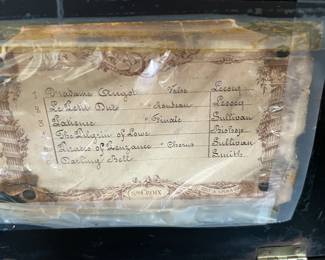 1 Madame Angot Valse Lecocq
2 Le Petit Duc Rondeau Lecocq
3 Patience Finale Sullivan
4 The Pilgrim of Love Bishop
5 Pirates of Penzance Chorus Sullivan
6 Darling Bell Smith
STE CROIX